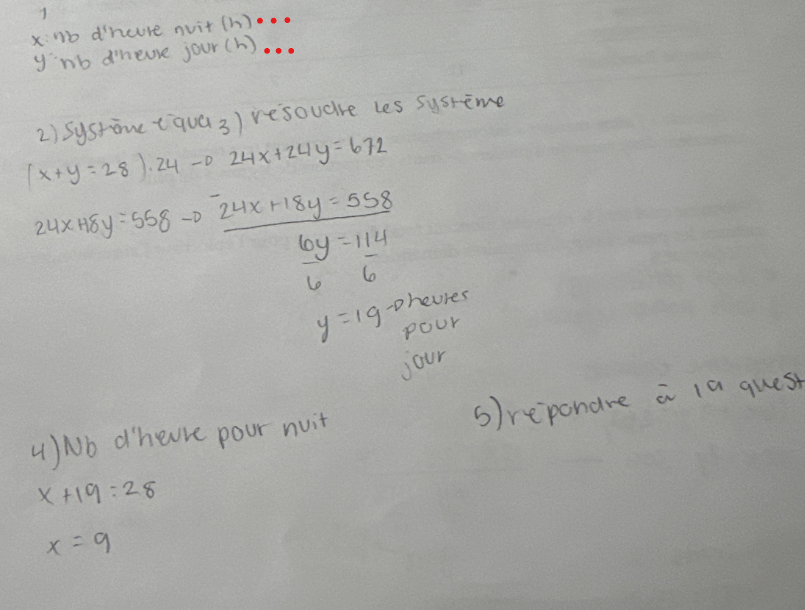 1
x: nb d'heure nuit (h)...
y: nb d'heure jour (h)...
2) Système équa 3) résoudre les système
(x+y=28).24 → 24x+24y=672
24x+18y=558 → -24x+18y=558
6y=114
6 6
y=19 → heures
pour
jour
4) Nb d'heure pour nuit
5) répondre à la quest
x+19=28
x=9